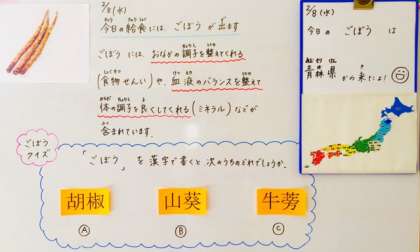 2/8(水)
今日の給食には ごぼう が 出ます
ごぼう には、おなかの調子を整えてくれる
(食物せんい)や、血液のバランスを整えて
体の調子を良くしてくれる(ミネラル)などが
含まれています。
ごぼう
クイズ
「ごぼう」を漢字で書くと 次のうちのどれでしょうか。
胡椒
山葵
牛蒡
A
B
C
2/8(水)
今日の ごぼう は
青森県から来たよ!